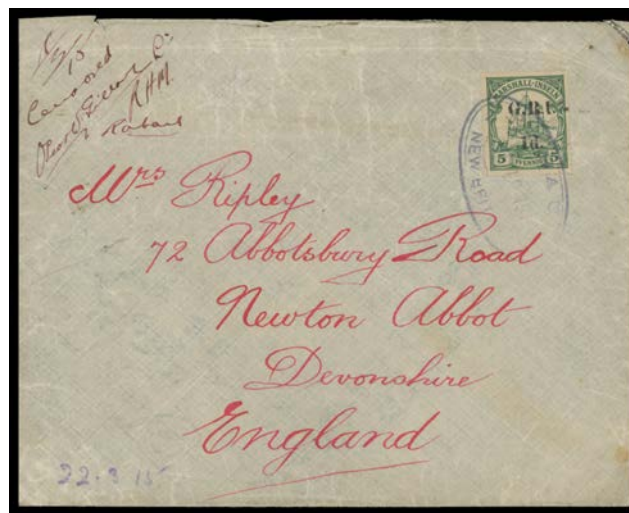 15
Censored
RHM.
Rabaul
MARSHALL-INSELN
G.R.I.
1d.
5 PFENNIG 5
NEW BRI
Mrs Ripley
72 Abbotsbury Road
Newton Abbot
Devonshire
England
22.3 15